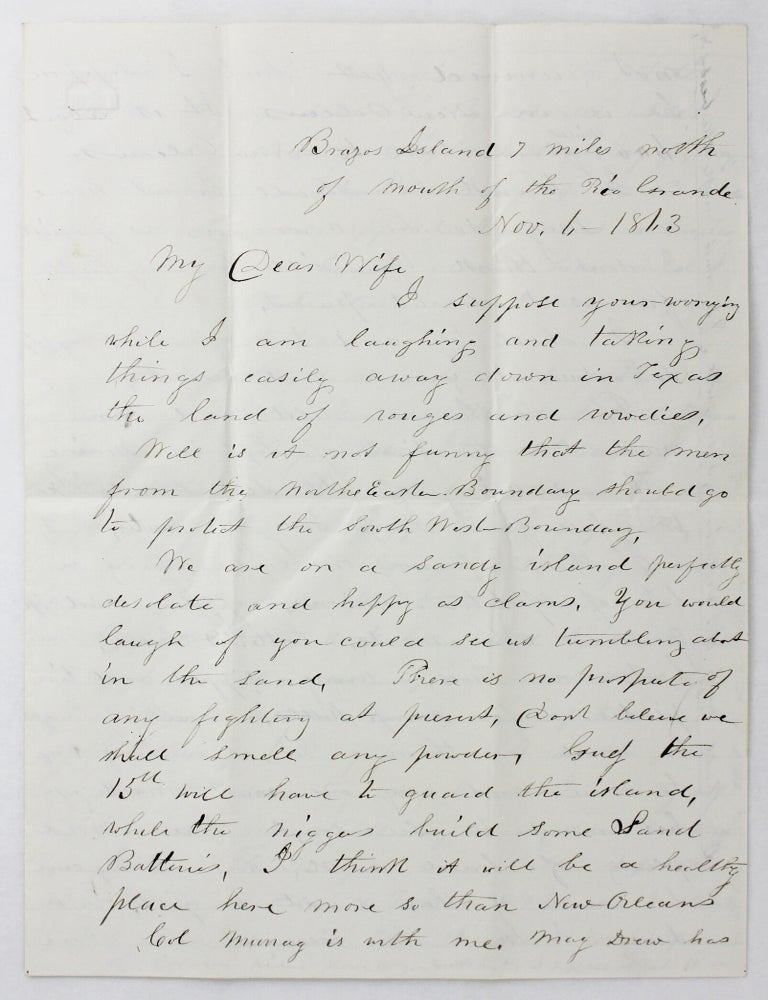 Brazos Island 7 miles north
of mouth of the Rio Grande.
Nov. 6 - 1863
My Dear Wife
I suppose your worrying
while I am laughing and taking
things easily away down in Texas
the land of rouges and rowdies,
Well is it not funny that the men
from the North Eastern Boundary should go
to protect the South West Boundary,
We are on a sandy island perfectly
desolate and happy as clams, You would
laugh if you could see us tumbling about
in the sand, There is no prospects of
any fighting at present, Dont believe we
shall smell any powder, Guess the
15th will have to guard the island,
while the niggas build some Sand
Batteries, I think it will be a healthy
place here more so than New Orleans
Col Murray is with me. May Drew has